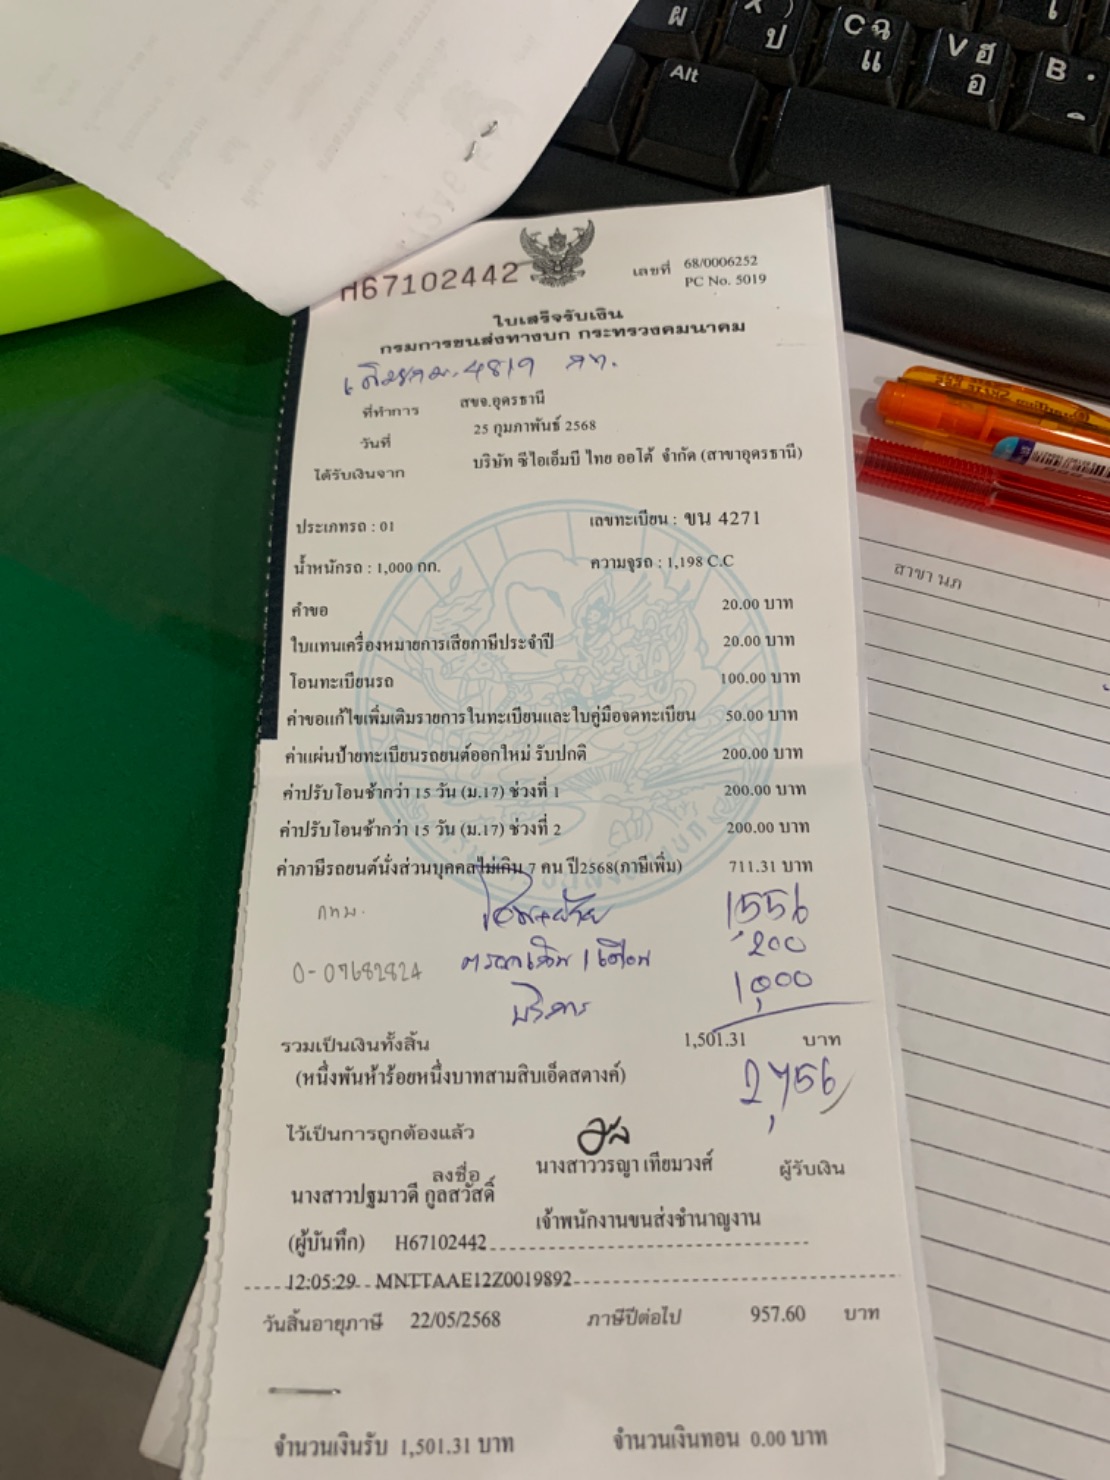 H67102442
เลขที่ 68/0006252
PC No. 5019
ใบเสร็จรับเงิน
กรมการขนส่งทางบก กระทรวงคมนาคม
4819 กท.
ที่ทำการ สขจ.อุดรธานี
วันที่ 25 กุมภาพันธ์ 2568
ได้รับเงินจาก บริษัท ซีไอเอ็มบี ไทย ออโต้ จำกัด (สาขาอุดรธานี)
ประเภทรถ : 01 เลขทะเบียน : ขน 4271
น้ำหนักรถ : 1,000 กก. ความจุรถ : 1,198 C.C
คำขอ 20.00 บาท
ใบแทนเครื่องหมายการเสียภาษีประจำปี 20.00 บาท
โอนทะเบียนรถ 100.00 บาท
ค่าขอแก้ไขเพิ่มเติมรายการในทะเบียนและใบคู่มือจดทะเบียน 50.00 บาท
ค่าแผ่นป้ายทะเบียนรถยนต์ออกใหม่ รับปกติ 200.00 บาท
ค่าปรับโอนช้ากว่า 15 วัน (ม.17) ช่วงที่ 1 200.00 บาท
ค่าปรับโอนช้ากว่า 15 วัน (ม.17) ช่วงที่ 2 200.00 บาท
ค่าภาษีรถยนต์นั่งส่วนบุคคลไม่เกิน 7 คน ปี2568(ภาษีเพิ่ม) 711.31 บาท
กทม. 1,556
200
0-07682824 1 เดือน
บริการ 1,000
รวมเป็นเงินทั้งสิ้น 1,501.31 บาท
(หนึ่งพันห้าร้อยหนึ่งบาทสามสิบเอ็ดสตางค์)
2,756
ไว้เป็นการถูกต้องแล้ว
ลงชื่อ นางสาววรญา เทียมวงศ์ ผู้รับเงิน
นางสาวปฐมาวดี กูลสวัสดิ์
เจ้าพนักงานขนส่งชำนาญงาน
(ผู้บันทึก) H67102442
12:05:29 MNTTAAE12Z0019892
วันสิ้นอายุภาษี 22/05/2568 ภาษีปีต่อไป 957.60 บาท
จำนวนเงินรับ 1,501.31 บาท จำนวนเงินทอน 0.00 บาท
Alt
ผ
X ) ป
C ฉ แ
V ฮ อ
B
สาขา นภ